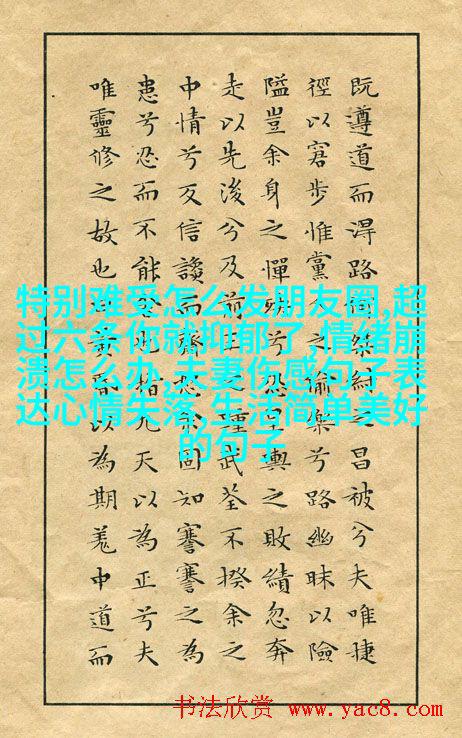 既遵道而淂路何桀紂之昌被兮夫唯捷
徑以窘步惟黨人之偷樂兮路幽昧以險
隘豈余身之憚殃兮恐皇輿之敗績忽奔
走以先後兮及前王之踵武荃不揆余之
中情兮反信讒而齌怒余固知謇謇之為
患兮忍而不能舍也指九天以為正兮夫
唯靈修之故也曰黃昏以為期羌中道而
特别难受怎么发朋友圈,超
过六条你就抑郁了,情绪崩
溃怎么办,夫妻伤感句子表
达心情失落,生活简单美好
的句子
书法欣赏 www.yac8.com